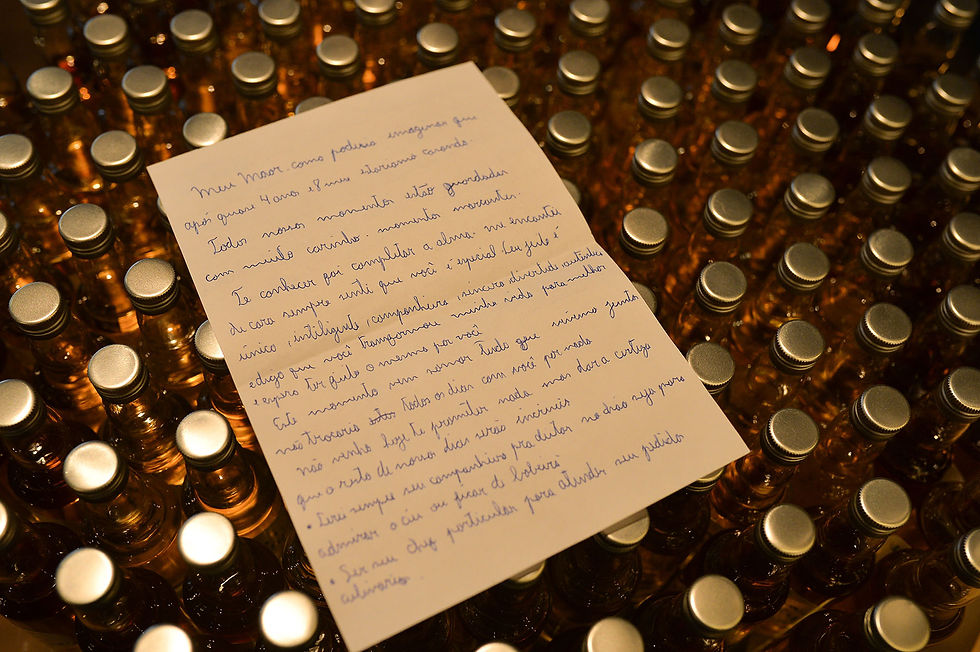 Meu Maor. como poderia imaginar que
após quase 4 anos e 8 mes estariamo casando.
Todos nossos momentos estão guardados
com muito carinho. momentos marcantes.
Te conhecer foi completar a alma. me encantei
de cara sempre senti que você é especial. Seu jeito é
único, inteligente, companheiro, sincero, divertido, autêntico
e digo que você transformou minha vida para melhor
e espero ter feito o mesmo por você
Este momento vem somar tudo que vivemos juntos
não trocaria todos os dias com você por nada
não venho hoje te prometer nada mas dar a certeza
que o resto de nossos dias serão incríveis
• Serei sempre seu companheiro pra deitar no chão seja para
admirar o céu ou ficar de bobeira
• Ser seu chef particular para atender seu pedidos
culinários.